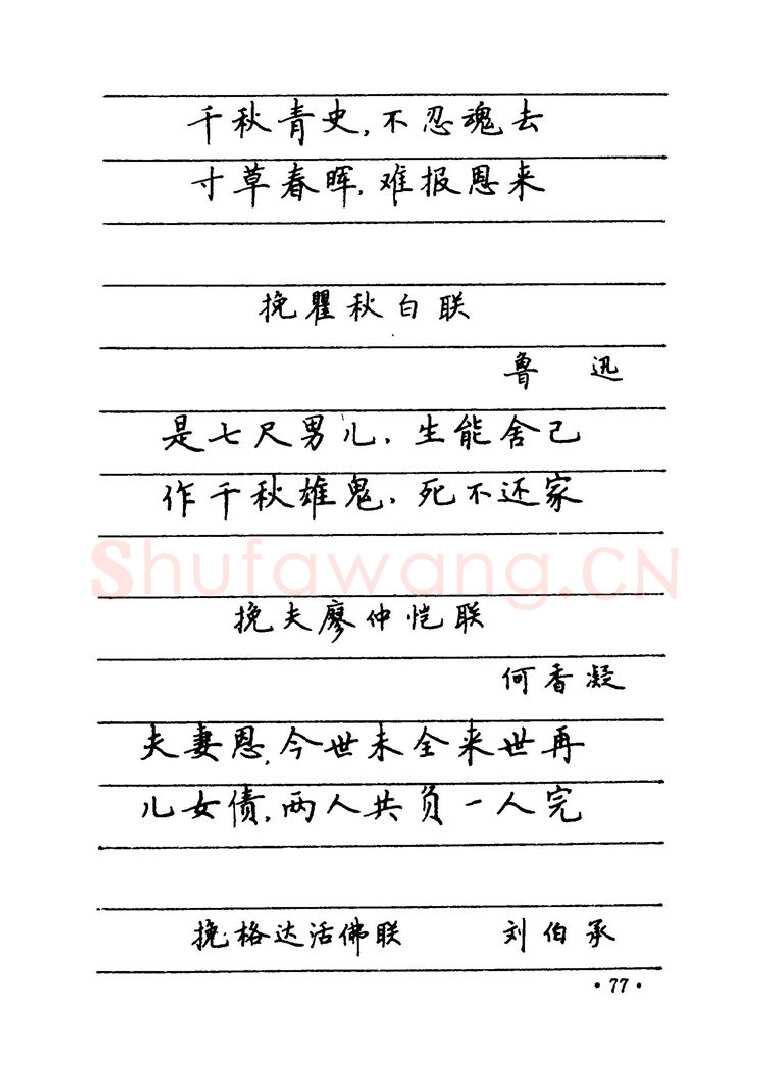 千秋青史,不忍魂去
寸草春晖,难报恩来
挽瞿秋白联
鲁 迅
是七尺男儿,生能舍己
作千秋雄鬼,死不还家
Shufawang.CN
挽夫廖仲恺联
何香凝
夫妻恩,今世未全来世再
儿女债,两人共负一人完
挽格达活佛联 刘伯承
·77·